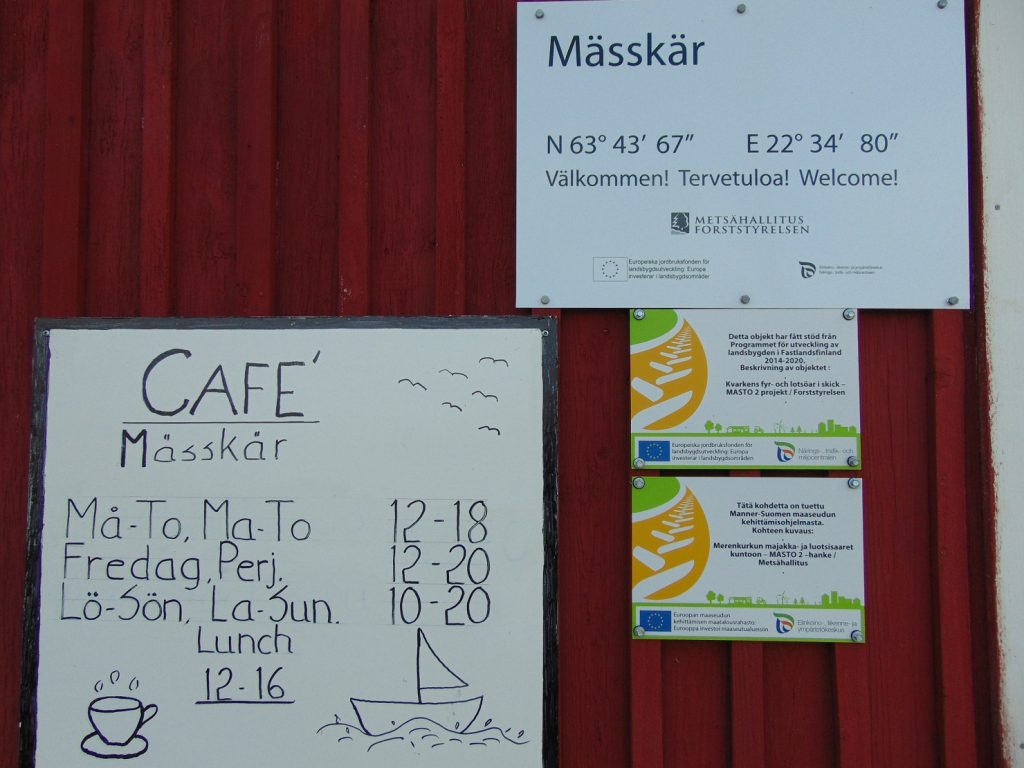 Mässkär
N 63° 43′ 67″ E 22° 34′ 80″
Välkommen! Tervetuloa! Welcome!
METSÄHALLITUS
FORSTSTYRELSEN
Europeiska jordbruksfonden för
landsbygdsutveckling: Europa
investerar i landsbygdsområden
CAFÉ
Mässkär
Må-To, Ma-To 12-18
Fredag, Perj. 12-20
Lö-Sön, La-Sun. 10-20
Lunch
12-16
Detta objekt har fått stöd från
Programmet för utveckling av
landsbygden i Fastlandsfinland
2014-2020.
Beskrivning av objektet :
Kvarkens fyr- och lotsöar i skick –
MASTO 2 projekt / Forststyrelsen
Europeiska jordbruksfonden för
landsbygdsutveckling: Europa
investerar i landsbygdsområden
Närings-, trafik- och
miljöcentralen
Tätä kohdetta on tuettu
Manner-Suomen maaseudun
kehittämisohjelmasta.
Kohteen kuvaus:
Merenkurkun majakka- ja luotsisaaret
kuntoon – MASTO 2 –hanke /
Metsähallitus
Euroopan maaseudun
kehittämisen maatalousrahasto:
Eurooppa investoi maaseutualueisiin
Elinkeino-, liikenne- ja
ympäristökeskus